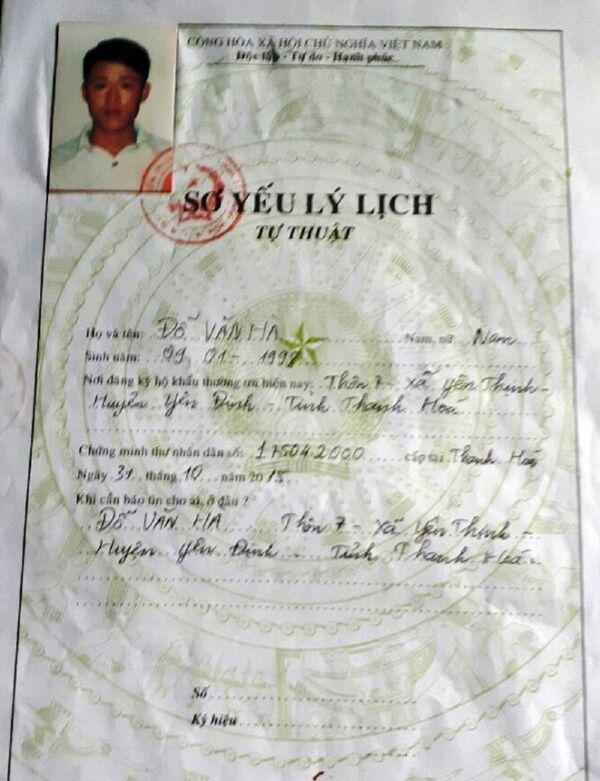 CỘNG HÒA XÃ HỘI CHỦ NGHĨA VIỆT NAM
Độc lập - Tự do - Hạnh phúc
SƠ YẾU LÝ LỊCH
TỰ THUẬT
Họ và tên: ĐỖ VĂN HÀ Nam, nữ: Nam
Sinh năm: 09 - 01 - 1998
Nơi đăng ký hộ khẩu thường trú hiện nay: Thôn 7 - xã Yên Thịnh -
Huyện Yên Định - Tỉnh Thanh Hoá
Chứng minh thư nhân dân số: 175042000 cấp tại: Thanh Hoá
Ngày 31 tháng 10 năm 2015
Khi cần báo tin cho ai, ở đâu ?
ĐỖ VĂN HÀ Thôn 7 - xã Yên Thịnh -
Huyện Yên Định Tỉnh Thanh Hoá
Số
Ký hiệu